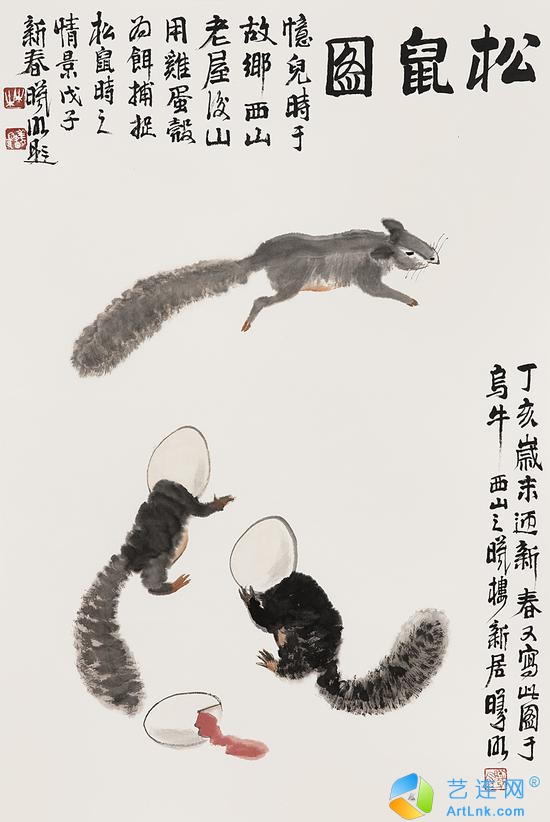 松鼠圖
憶兒時于
故鄉西山
老屋後山
用雞蛋殼
為餌捕捉
松鼠時之
情景戊子
新春曦
題
丁亥歲末迎新春又寫此圖于
烏牛西山之曦樓新居曦
艺连网®
ArtLnk.com